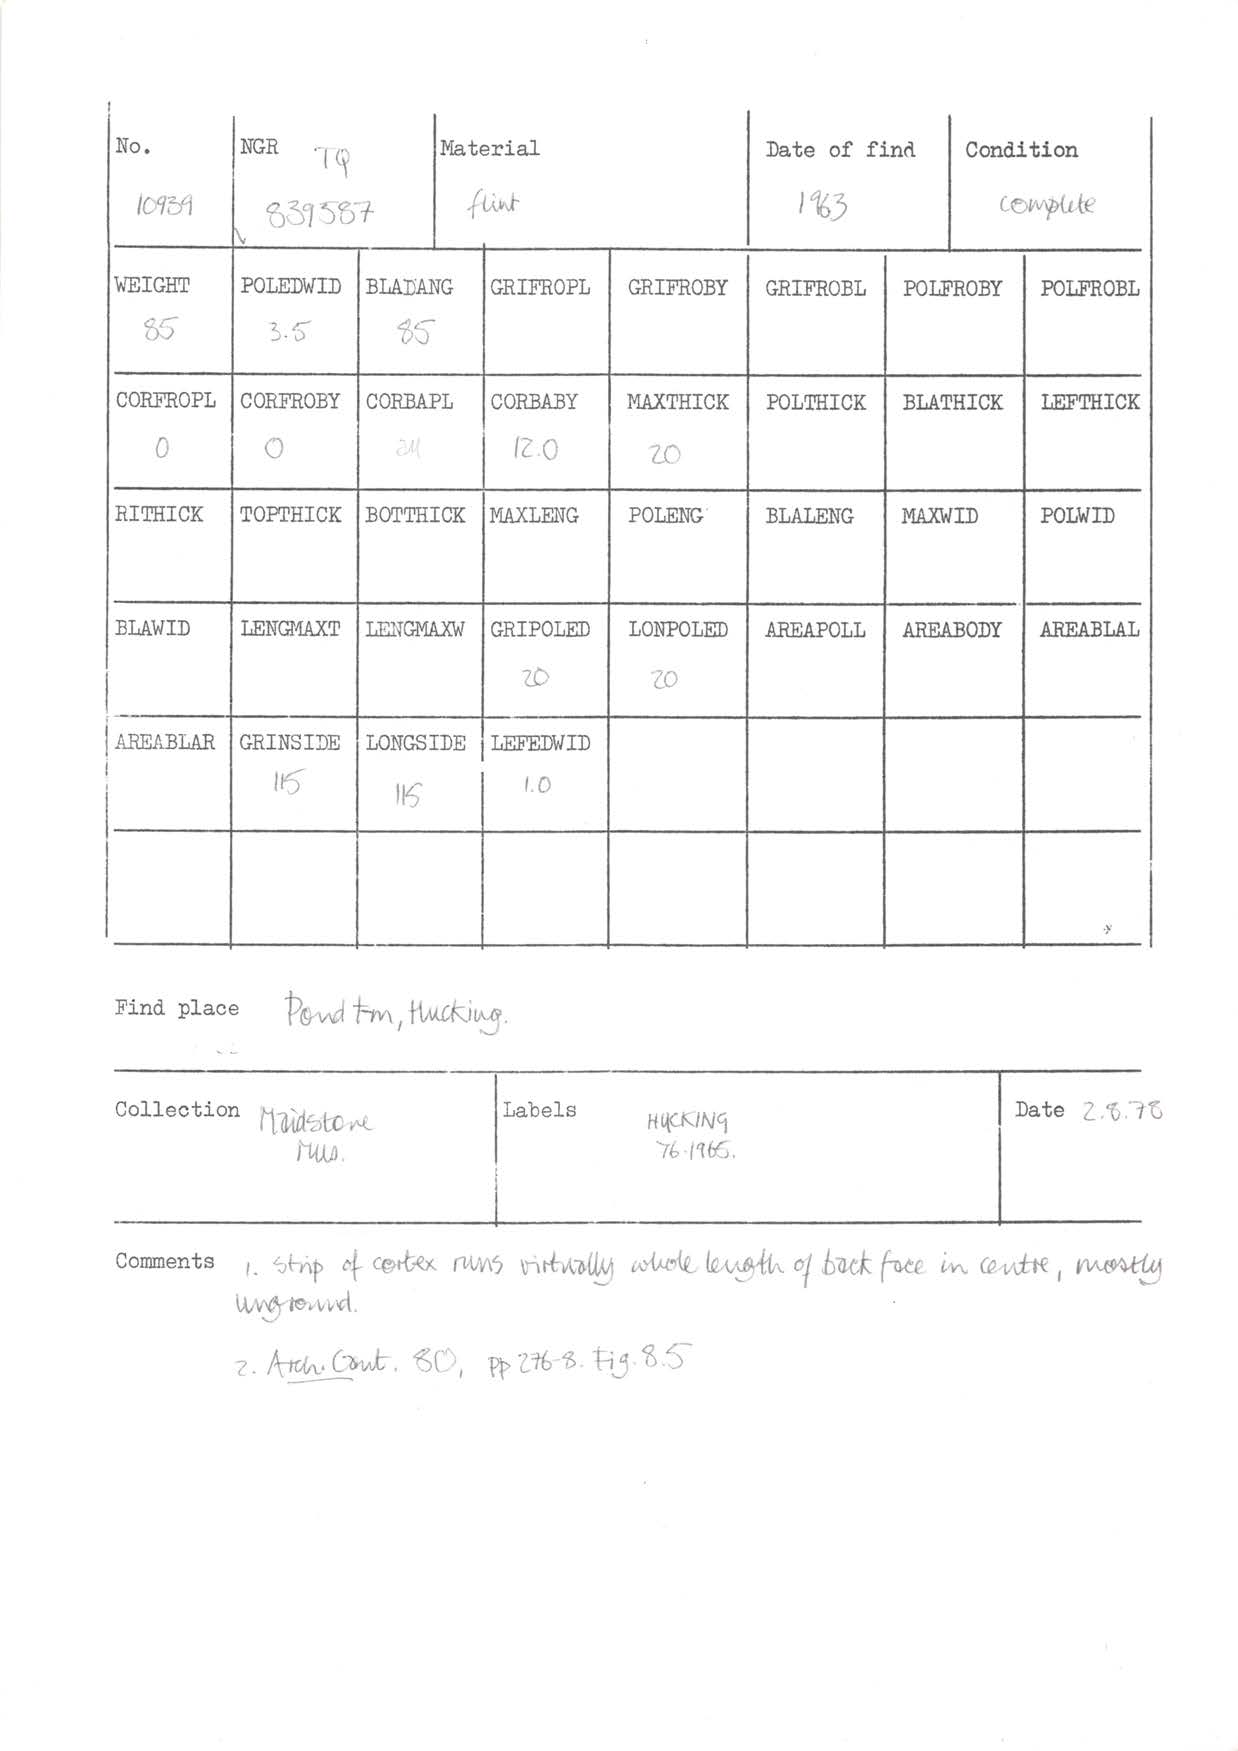 No. NGR TQ Material Date of find Condition
10939 839587 flint 1963 complete
WEIGHT POLEDWID BLADANG GRIFROPL GRIFROBY GRIFROBL POLFROBY POLFROBL
85 3.5 85
CORFROPL CORFROBY CORBAPL CORBABY MAXTHICK POLTHICK BLATHICK LEFTHICK
0 0 12.0 20
RITHICK TOPTHICK BOTTHICK MAXLENG POLENG BLALENG MAXWID POLWID
BLAWID LENGMAXT LENGMAXW GRIPOLED LONPOLED AREAPOLL AREABODY AREABLAL
20 20
AREABLAR GRINSIDE LONGSIDE LEFEDWID
115 115 1.0
Find place Pond Fm, Hucking.
Collection Maidstone Labels HUCKING Date 2.8.78
Mus. 76.1965.
Comments 1. Strip of cortex runs virtually whole length of back face in centre, mostly
unground.
2. Arch. Cant. 80, pp 276-8. Fig. 8.5